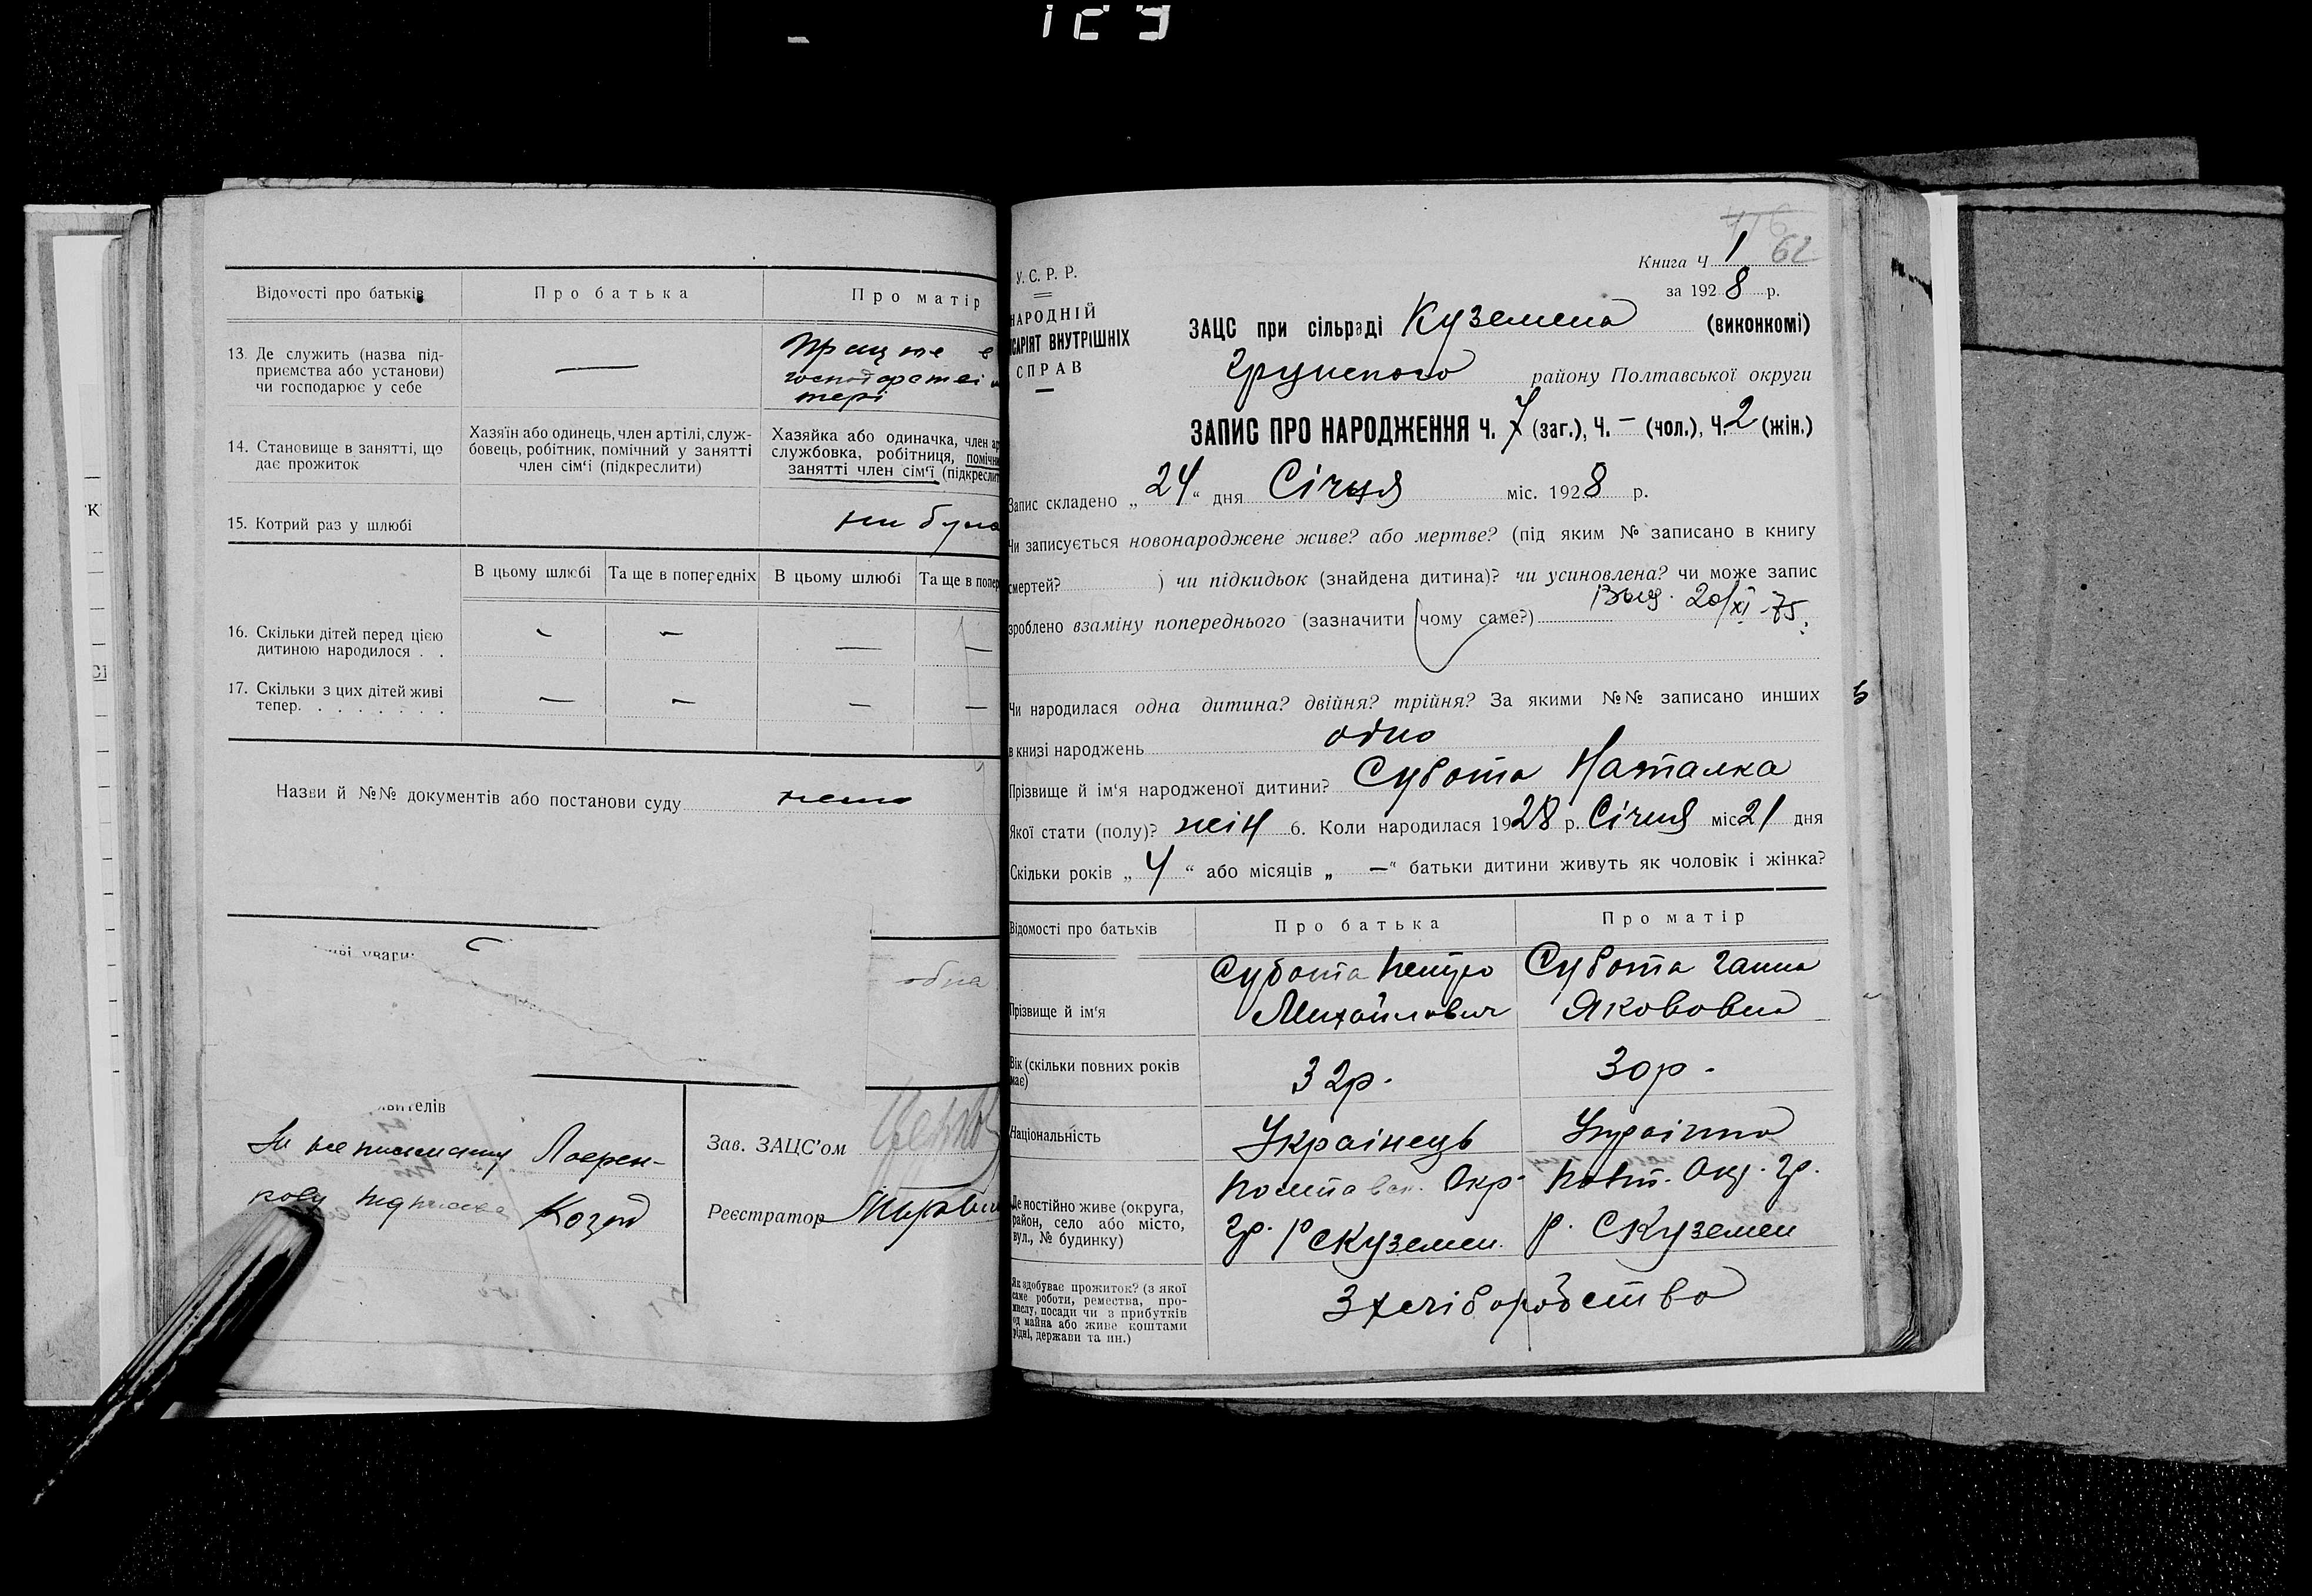 Відомості про батьків
Про батька
Про матір
13. Де служить (назва під-
приємства або установи)
чи господарює у себе
—
Працює в
господарстві
тері
14. Становище в занятті, що
дає прожиток
Хазяїн або одинець, член артілі, служ-
бовець, робітник, помічний у занятті
член сім'ї (підкреслити)
Хазяйка або одиначка, член ар
службовка, робітниця, помічн
занятті член сім'ї (підкреслит
15. Котрий раз у шлюбі
ни була
В цьому шлюбі
Та ще в попередніх
В цьому шлюбі
Та ще в попер
16. Скільки дітей перед цією
дитиною народилося . .
— — — —
17. Скільки з цих дітей живі
тепер. . . . . . . .
— — — —
Назви й №№ документів або постанови суду нема
ві уваги:
одна
вителів
За не письменну Лаврен-
кову підписав Козуб
Зав. ЗАЦС'ом
Реєстратор
У. С. Р. Р.
НАРОДНІЙ
САРІЯТ ВНУТРІШНІХ
СПРАВ
62
Книга Ч 1
за 1928 р.
ЗАЦС при сільраді Куземена (виконкомі)
Грунського району Полтавської округи
ЗАПИС ПРО НАРОДЖЕННЯ Ч. 7 (заг.), Ч. – (чол.), Ч. 2 (жін.)
Запис складено „24“ дня Січня міс. 1928 р.
Чи записується новонароджене живе? або мертве? (під яким № записано в книгу
смертей? ) чи підкидьок (знайдена дитина)? чи усиновлена? чи може запис
зроблено взаміну попереднього (зазначити чому саме?) Выд. 20/XI-75.
Чи народилася одна дитина? двійня? трійня? За якими №№ записано инших
в книзі народжень одно
Прізвище й ім'я народженої дитини? Субота Наталка
Якої стати (полу)? жін 6. Коли народилася 1928 р. Січня міс 21 дня
Скільки років „4“ або місяців „—“ батьки дитини живуть як чоловік і жінка?
Відомості про батьків
Про батька
Про матір
Прізвище й ім'я
Субота Петро
Михайлович
Субота Ганна
Якововна
Вік (скільки повних років
має)
32р.
30р.
Національність
Українець
Українка
Де постійно живе (округа,
район, село або місто,
вул., № будинку)
Полтавськ. Окр.
Гр. Р С Куземен.
Полт. Окр. Гр.
р. С Куземен
Як здобуває прожиток? (з якої
саме роботи, ремества, про-
мислу, посади чи з прибутків
од майна або живе коштами
рідні, держави та ин.)
З хліборобства